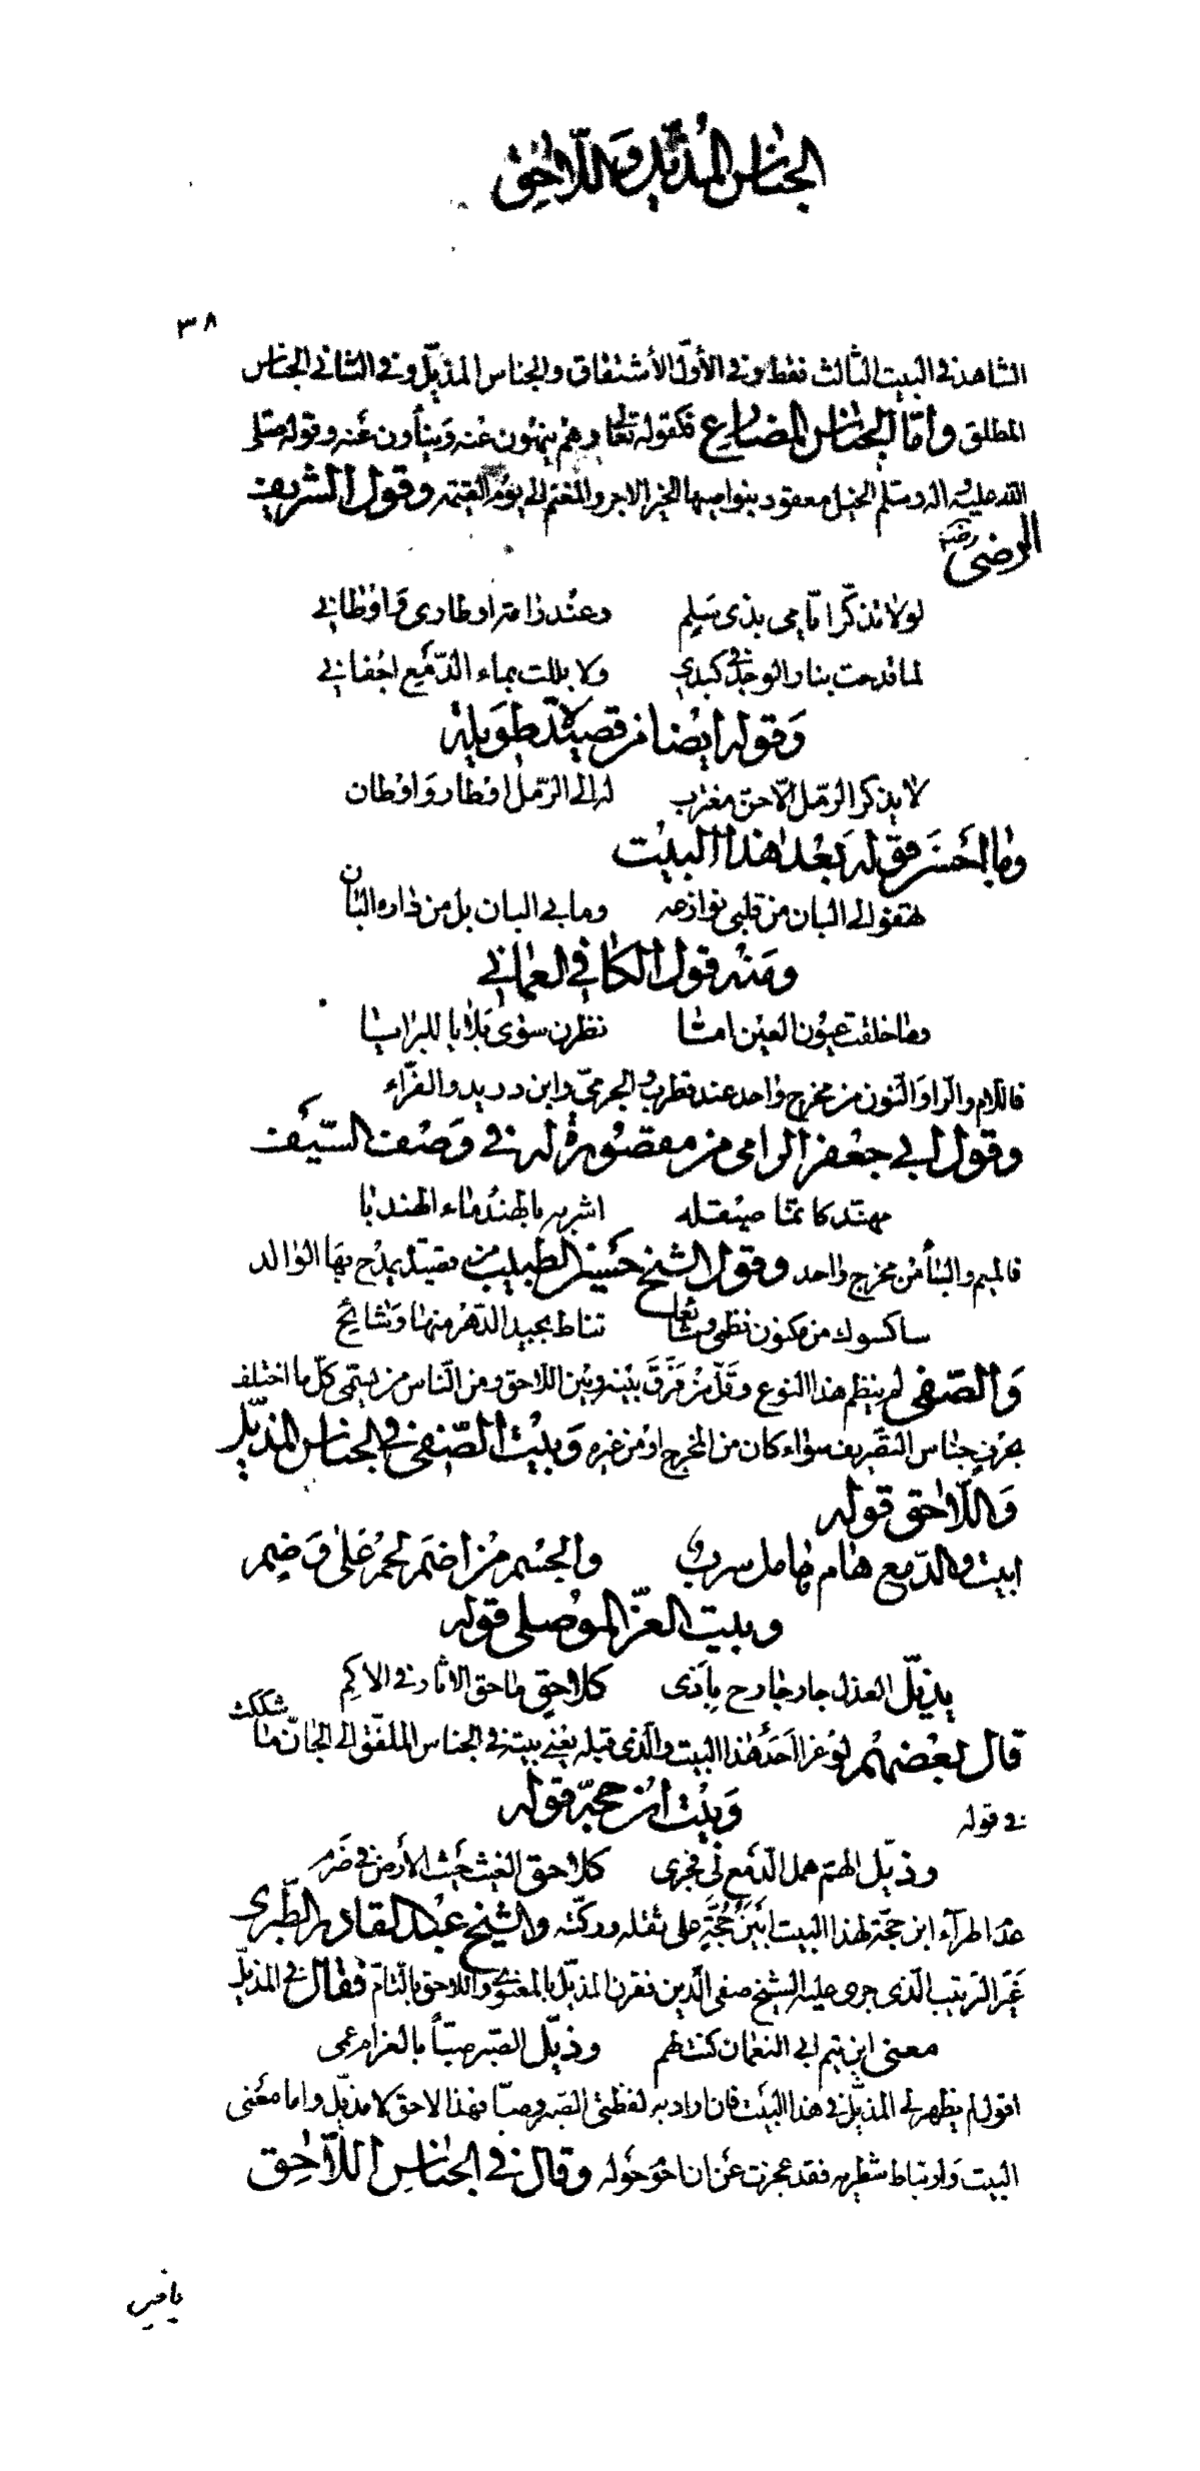 الجناس المذيّل واللّاحق
٣٨
الشاهد في البيت الثالث فقط وفي الأوّل الأشتقاق والجناس المذيّل وفي الثاني الجناس
المطلق وأمّا الجناس المضارع فكقوله تعالى وهم ينهون عنه وينأون عنه وقوله صلى
الله عليه واله وسلم الخيل معقود بنواصيها الخير الاجر والمغنم الى يوم القيمة وقول الشريف
الرضى رضه
لولا تذكّر ايّامي بذى سَلِم وعند رامة اوطارى وَاوطاني
لما قدحت بنار الوجد في كبدي ولا بللت بماء الدّمع اجفاني
وَقوله ايضا من قصيدة طويلة
لا يذكر الرّمل الّا حنّ مغترب له الى الرّمل اوطار وَاوطان
وما احسَن قوله بَعد هذا البيت
تهفو الى البان من قلبي نوازعه وما بي البان بل من داره البان
ومنه قول الكافي العماني
وما خلقت عيون العين امّا نظرن سوى بلايا للبرايا
فاللّام والرّا وَالنّون من مخرج واحد عند قطرب والجرميّ وابن دريد والفرّاء
وقول ابي جعفر الرامى من مقصورة له في وَصف السّيف
مهنّد كانّما صيقله اشربه بالهند ماء الهندبا
فالميم والباء من مخرج واحد وقول الشيخ حسين الطبيب من قصيدة يمدح بها الوالد
ساكسوك من مكنون نظمى وشائعا تناط بجيد الدّهر منها وَشائح
وَالصّفى لم ينظم هذا النوع وَقلّ مَن فرّقَ بينه وبين اللّاحق ومن النّاس من يسمّى كلّ ما اختلف
بحرفٍ جناس التصريف سواء كان من المخرج او من غيره وَبيت الصّفى في الجناس المذيّل
وَاللّاحق قوله
ابيت والدّمع هام هامل سرب والجسم من اضم لحم على وَضم
وبيت العزّ الموصلى قوله
يذيّل العذل جار جارح بِاَذى كلاحقٍ ماحق الاثار في الاكم
قال بعضهم لو عزا اَحَدٌ هذا البيت والّذى قبله يعني بيته في الجناس الملفّق الى الجانّ ما شككت
في قوله وَبيت ابن حجّة قوله
وذيّل الهمّ همل الدّمع لي فجرى كلاحق الغيث حَيث الأرض في ضرم
عدا اطراء ابن حجّة لهذا البيت اَبيَن حُجَّةٍ على ثقله وركّته والشيخ عبد القادر الطّبرى
غيّر الترتيب الّذى جرى عليه الشيخ صفى الدّين فقرن المذيّل بالمعنوىّ واللّاحق بالتّامّ فقال في المذيّل
معنى ابن تيم ابي النعمان كنت لهم وذيّل الصّبر صبّاً بالغرام عمى
اقول لم يظهر لي المذيّل في هذا البيت فان اراد به لفظتى الصّبر وصبّا فهذا لاحق لا مذيّل واما معنى
البيت وَارتباط شطريه فقد عجزت عَن ان احُوم حَوله وقال في الجناس اللّاحق